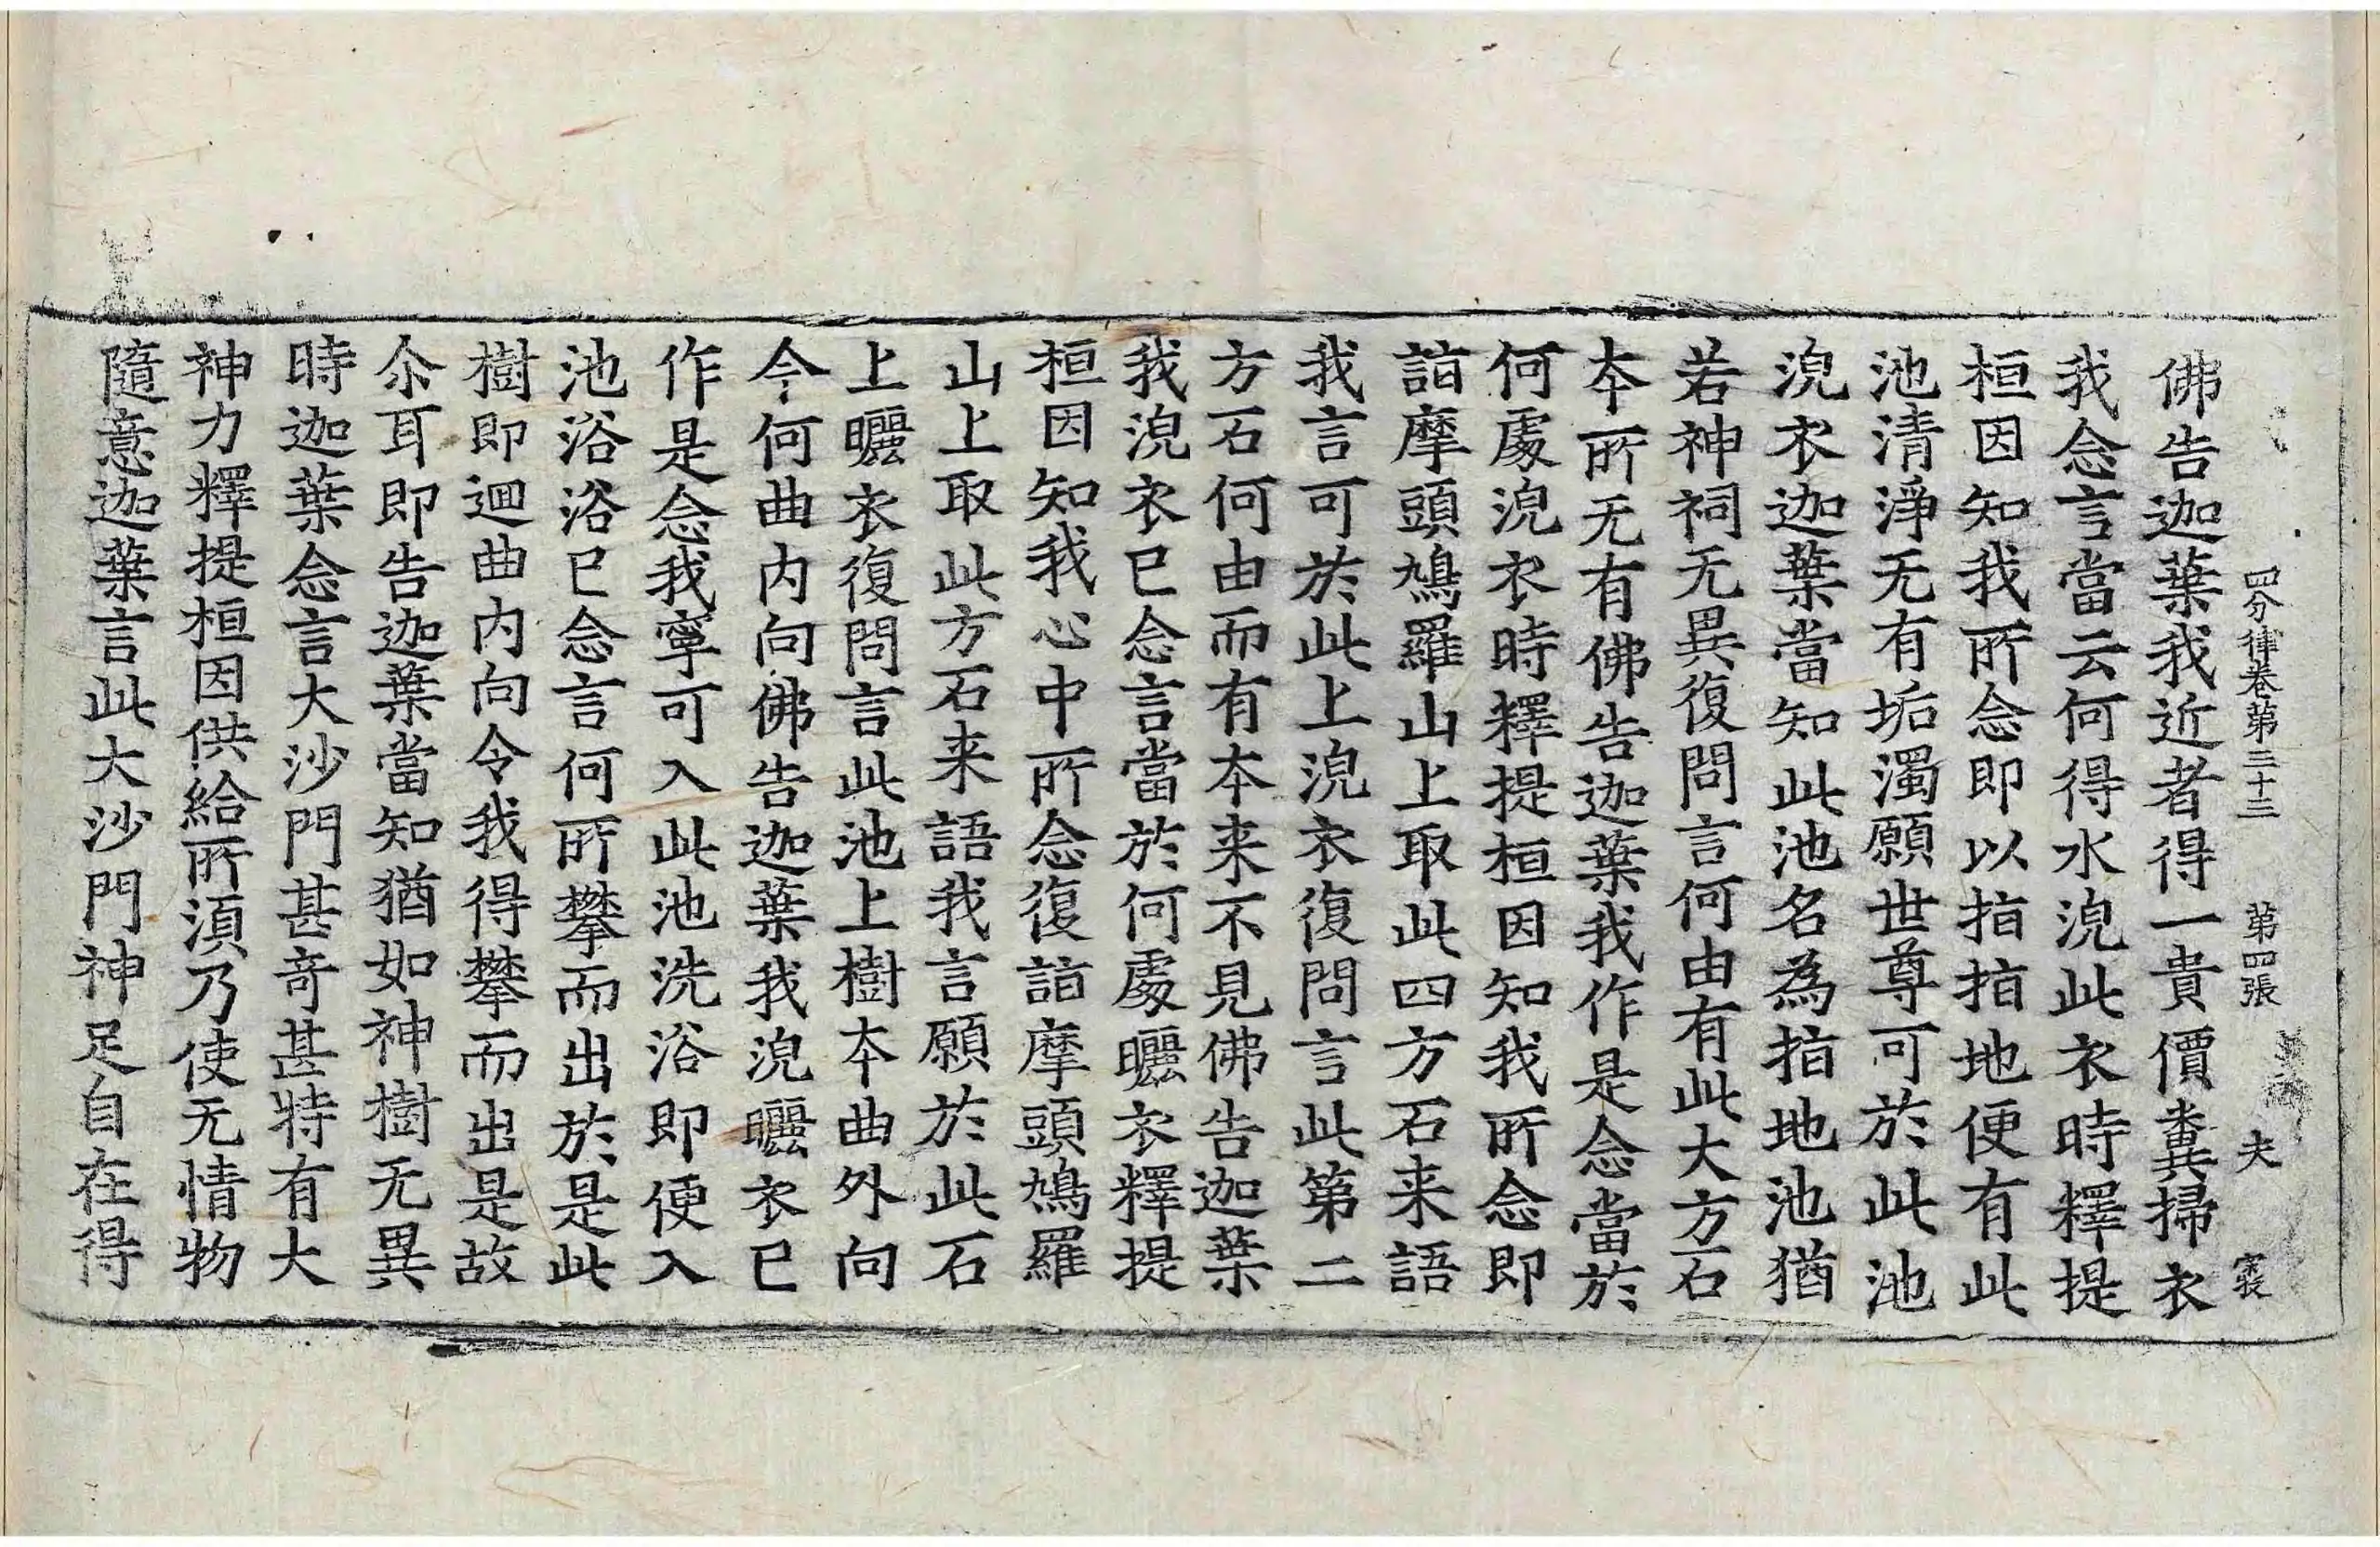 四分律卷第三十三 第四張 夫
佛告迦葉我近者得一貴價糞掃衣
我念言當云何得水浣此衣時釋提
桓因知我所念即以指指地便有此
池清淨无有垢濁願世尊可於此池
浣衣迦葉當知此池名為指地池猶
若神祠无異復問言何由有此大方石
本所无有佛告迦葉我作是念當於
何處浣衣時釋提桓因知我所念即
詣摩頭鳩羅山上取此四方石来語
我言可於此上浣衣復問言此第二
方石何由而有本来不見佛告迦葉
我浣衣已念言當於何處曬衣釋提
桓因知我心中所念復詣摩頭鳩羅
山上取此方石来語我言願於此石
上曬衣復問言此池上樹本曲外向
今何曲内向佛告迦葉我浣曬衣已
作是念我寧可入此池洗浴即便入
池浴浴已念言何所攀而出於是此
樹即迴曲内向令我得攀而出是故
尒耳即告迦葉當知猶如神樹无異
時迦葉念言大沙門甚奇甚特有大
神力釋提桓因供給所湏乃使无情物
隨意迦葉言此大沙門神足自在得